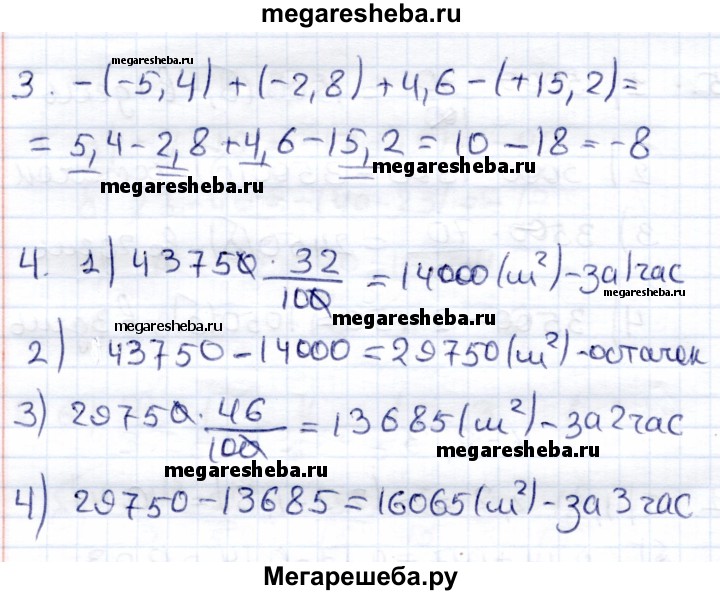 megaresheba.ru
megaresheba.ru
3. -(-5,4)+(-2,8)+4,6-(+15,2)=
= 5,4-2,8+4,6-15,2=10-18=-8
megaresheba.ru megaresheba.ru
4. 1) 43750 · 32/100 = 14000 (м²) - за 1 час
megaresheba.ru
megaresheba.ru megaresheba.ru
2) 43750-14000=29750 (м²) -остачек
3) 29750 · 46/100 = 13685 (м²) - за 2 час
megaresheba.ru
megaresheba.ru
4) 29750-13685=16065 (м²) - за 3 час
Мегарешеба.ру